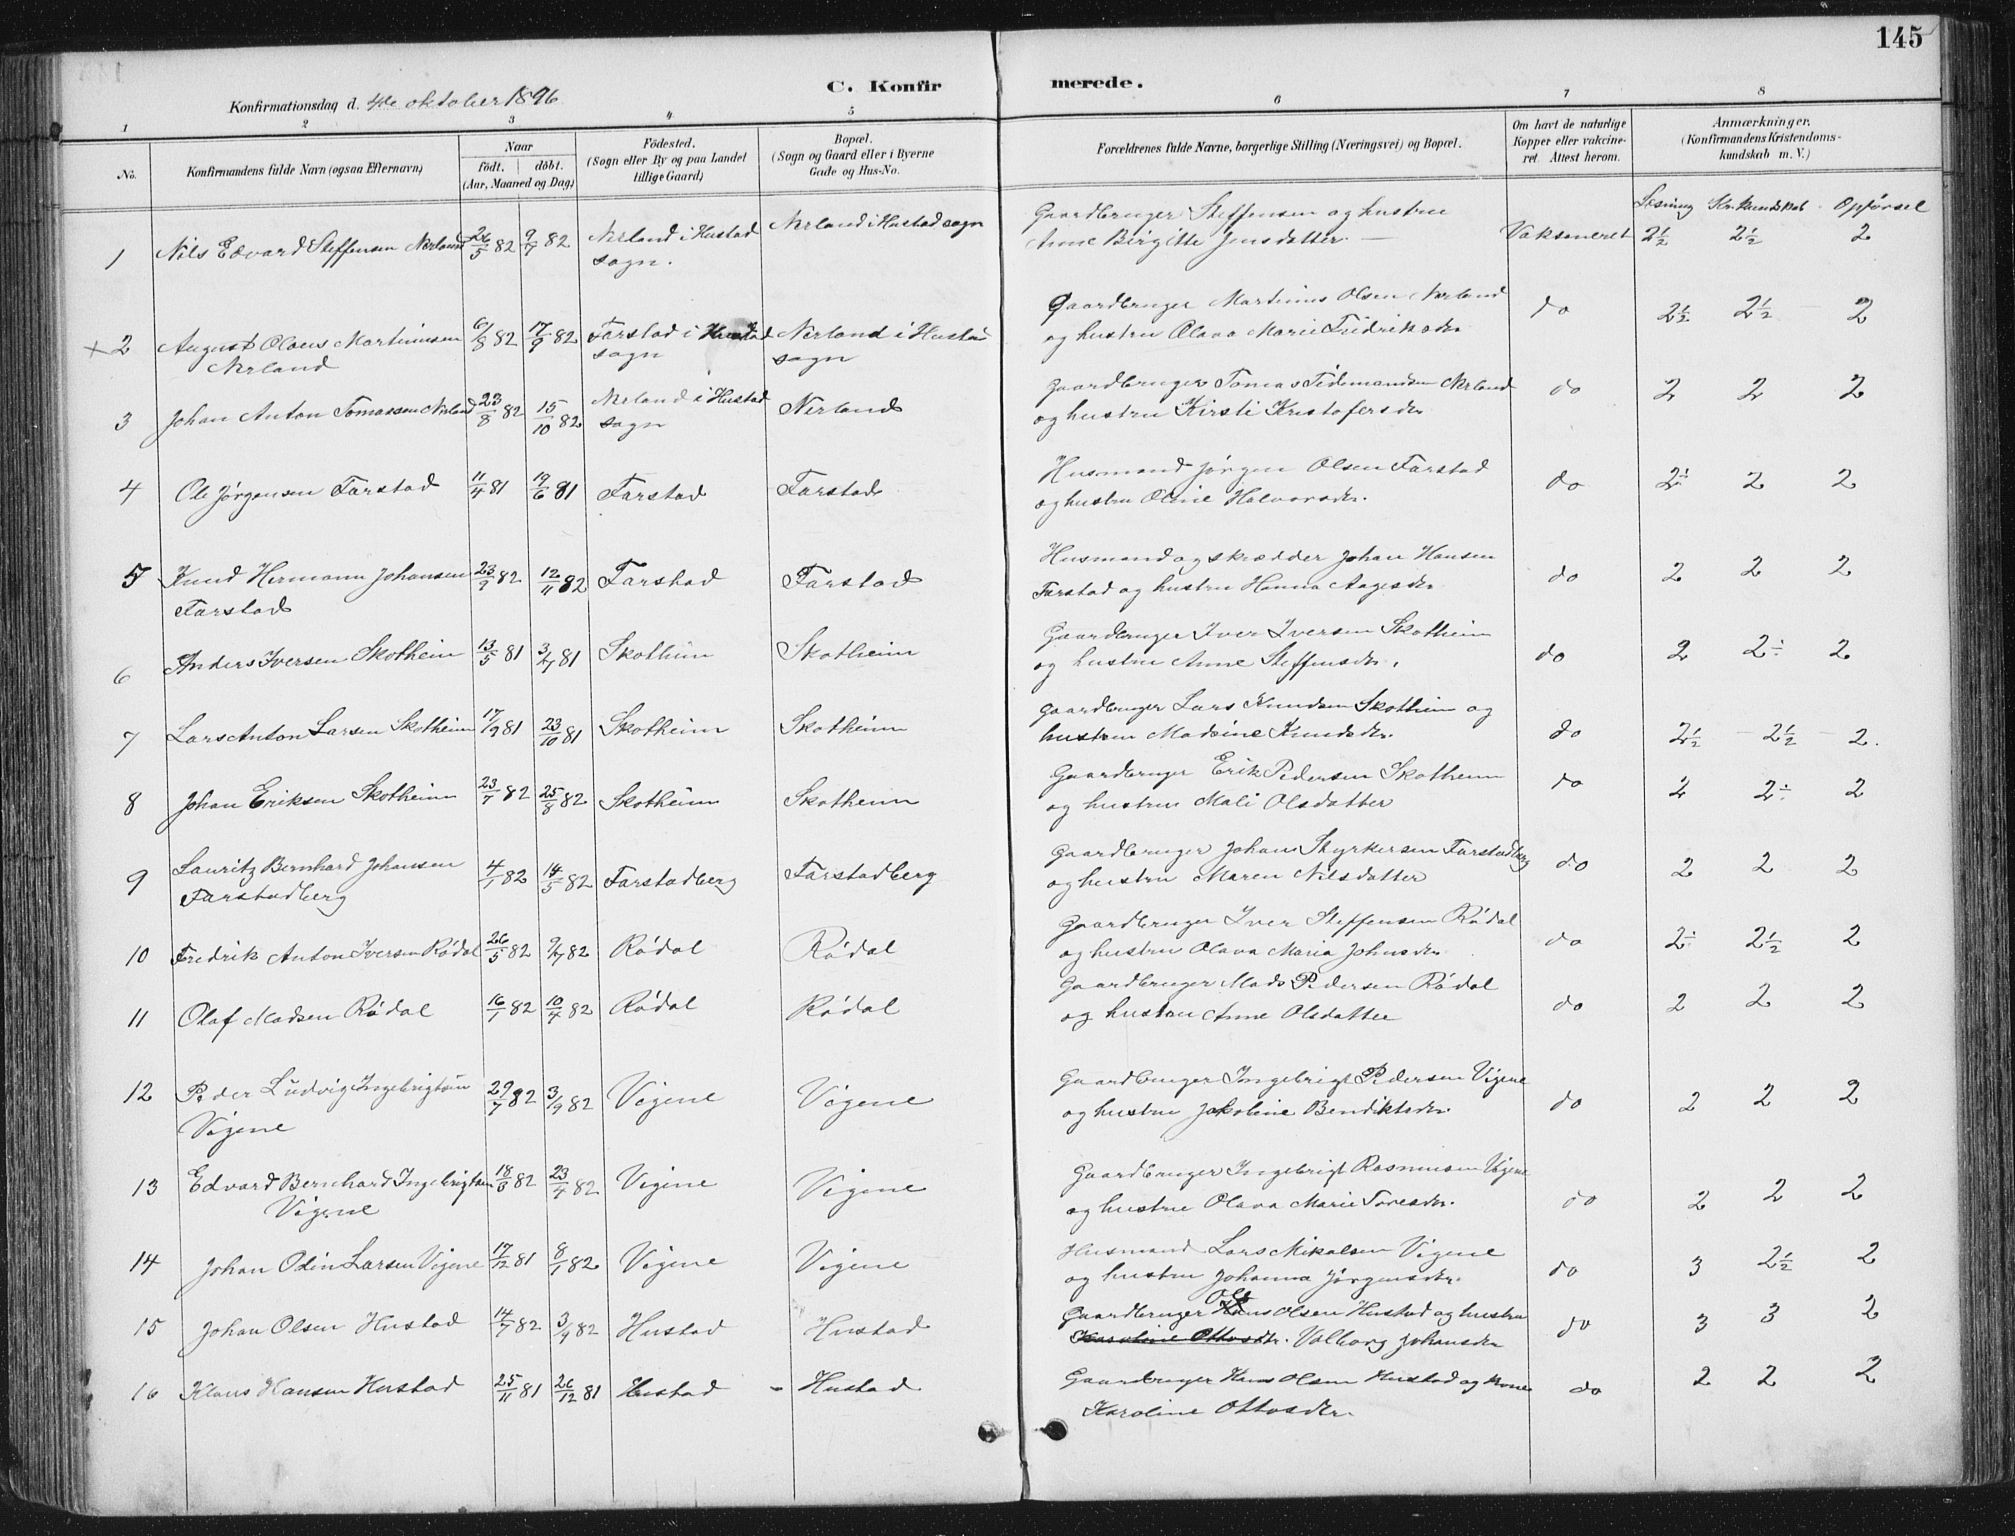 145
C. Konfirmerede.
Konfirmationsdag d. 4de oktober 1896
1 2 3 4 5 6 7 8
No. Konfirmandens fulde Navn (ogsaa Efternavn) Naar født. døbt. (Aar, Maaned og Dag) Fødested. (Sogn eller By og paa Landet tillige Gaard) Bopæl. (Sogn og Gaard eller i Byerne Gade og Hus-No. Forældrenes fulde Navne, borgerlige Stilling (Næringsvei) og Bopæl. Om havt de naturlige Kopper eller vakcineret. Attest herom. Anmærkninger. (Konfirmandens Kristendomskundskab m. V.)
Læsning Kr. Kundskab Opførsel
1 Nils Edvard Steffensen Nerland 26/5 82 9/7 82 Nerland i Hustad sogn. Nerland i Hustad sogn Gaardbruger Steffensen og hustru
Anne Birgitte Jensdatter — Vaksineret 2½ 2½ 2
+2 August Olaus Martinusen Nerland 6/8 82 17/9 82 Farstad i Hustad sogn Nerland i Hustad sogn Gaardbruger Martinus Olsen Nerland
og hustru Olava Marie Fredriksdr do 2½ 2½ 2
3 Johan Anton Tomassen Nerland 23/8 82 15/10 82 Nerland i Hustad sogn Nerland Gaardbruger Tomas Tidemandsen Nerland
og hustru Kirsti Kristofersdr do 2 2 2
4 Ole Jørgensen Farstad 11/4 81 19/6 81 Farstad Farstad Husmand Jørgen Olsen Farstad
og hustru Oline Halvorsdr. do 2÷ 2 2
5 Knud Hermann Johansen Farstad 23/9 82 12/11 82 Farstad Farstad Husmand og skrædder Johan Hansen
Farstad og hustru Hanna Aagesdr do 2 2 2
6 Anders Iversen Skotheim 13/5 81 3/7 81 Skotheim Skotheim Gaardbruger Iver Iversen Skotheim
og hustru Anne Steffensdr. do 2 2÷ 2
7 Lars Anton Larsen Skotheim 17/9 81 23/10 81 Skotheim Skotheim Gaardbruger Lars Knudsen Skotheim og
hustru Madsine Knudsdr. do 2½ 2½ 2.
8 Johan Eriksen Skotheim 23/7 82 25/8 82 Skotheim Skotheim Gaardbruger Erik Pedersen Skotheim
og hustru Mali Olsdatter do 2 2÷ 2
9 Lauritz Bernhard Johansen Farstadberg 4/1 82 14/5 82 Farstadberg Farstadberg Gaardbruger Johan Styrkersen Farstadberg
og hustru Maren Nilsdatter do 2 2 2
10 Fredrik Anton Iversen Rødal 26/5 82 9/7 82 Rødal Rødal Gaardbruger Iver Steffensen Rødal
og hustru Olava Maria Johnsdr do 2÷ 2½ 2
11 Olaf Madsen Rødal 16/1 82 10/4 82 Rødal Rødal Gaardbruger Mads Pedersen Rødal
og hustru Anne Olsdatter do 2 2 2
12 Peder Ludvig Ingebrigtsen Vigene 29/7 82 3/9 82 Vigene Vigene Gaardbruger Ingebrigt Pedersen Vigene
og hustru Jakobine Bendiktsdr. do 2 2 2
13 Edvard Bernhard Ingebrigtsen Vigene 18/3 82 23/4 82 Vigene Vigene Gaardbruger Ingebrigt Rasmusen Vigene
og hustru Olava Marie Toresdr. do 2 2 2
14 Johan Odin Larsen Vigene 17/12 81 8/1 82 Vigene Vigene Husmand Lars Nikolsen Vigene
og hustru Johanna Jørgensdr. do 3 2½ 2
15 Johan Olsen Hustad 14/7 82 3/9 82 Hustad Hustad Gaardbruger Hans Ole Olsen Hustad og hustru
Karoline Ottosdr. Valborg Johansdr do 3 3 2
16 Klaus Hansen Hustad 25/11 81 26/12 81 Hustad - Hustad Gaardbruger Hans Olsen Hustad og kone
Karoline Ottosdr. do 2 2 2